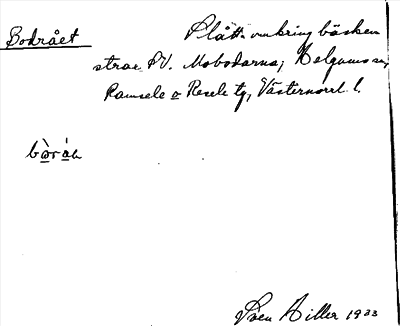 Bodrået Slått omkring bäcken
strax SV. Mobodarna; Helgumssn,
Ramsele o Resele tg, Västernorrl. l.
Sven Hiller 1933